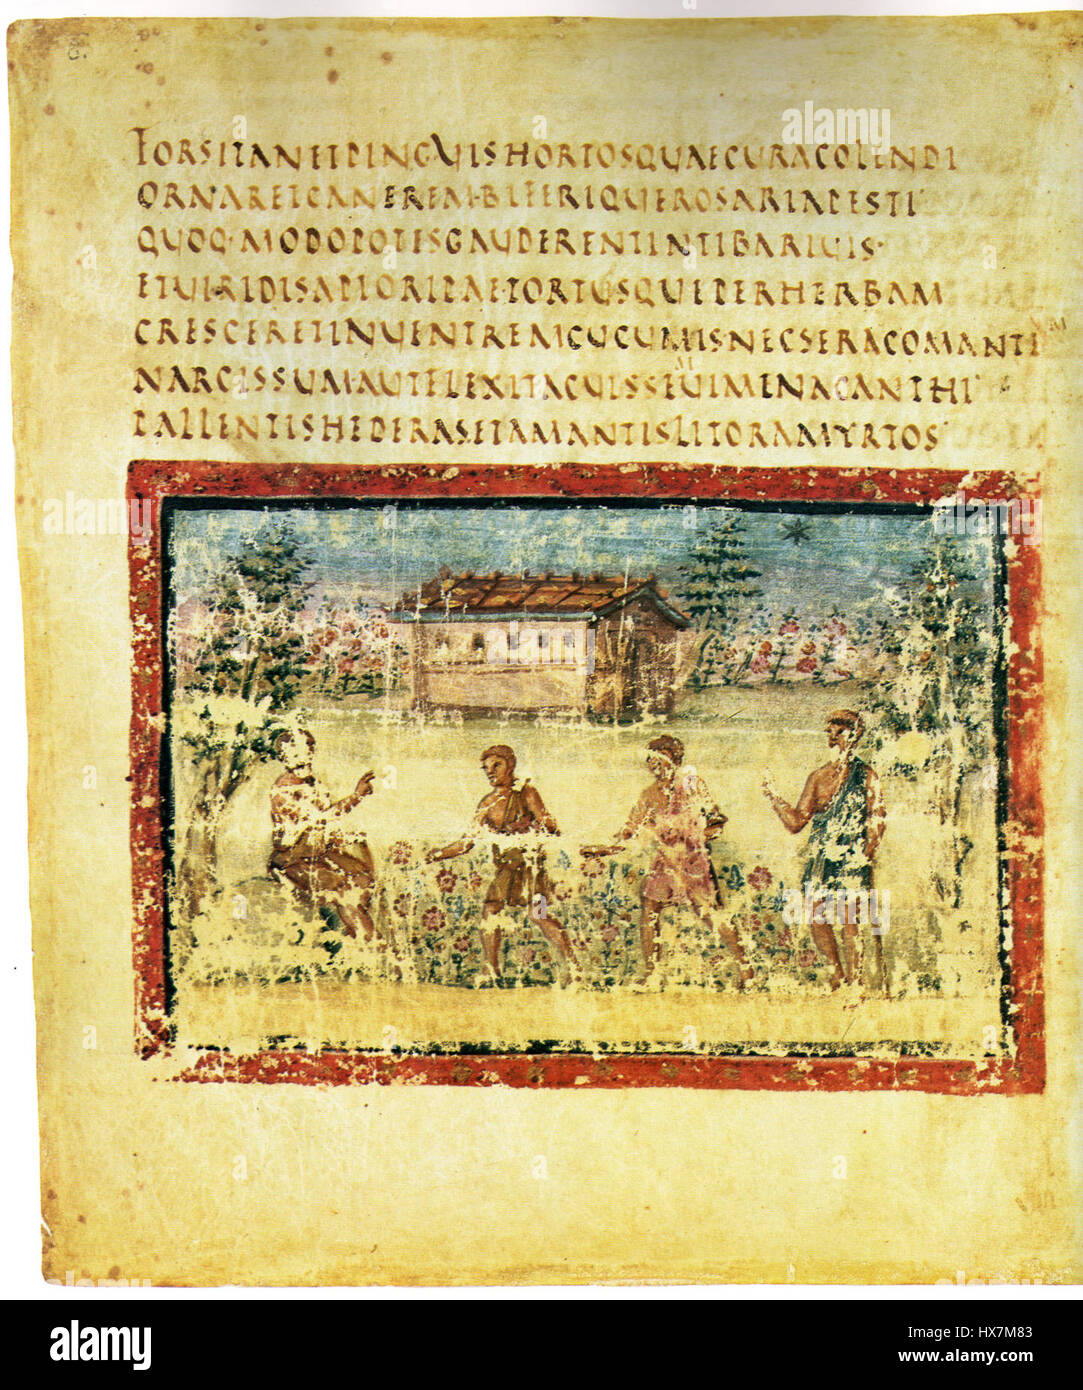 FORSITANETPINGUISHORTOSQUAECURACOLENDI
ORNARETCANEREM·BIFERIQUEROSARIAPESTI
QUOQ·MODOPOTISGAUDERENTINTIBARIUIS·
ETUIRIDISAPIORIPAETORTUSQUEPERHERBAM
CRESCERETINUENTREMCUCUMISNECSERACOMANTE
NARCISSUMAUTFLEXITACUISSEUIMENACANTHI
PALLENTISHEDERASETAMANTISLITORAMYRTOS
alamy stock photo
HX7M83
www.alamy.com